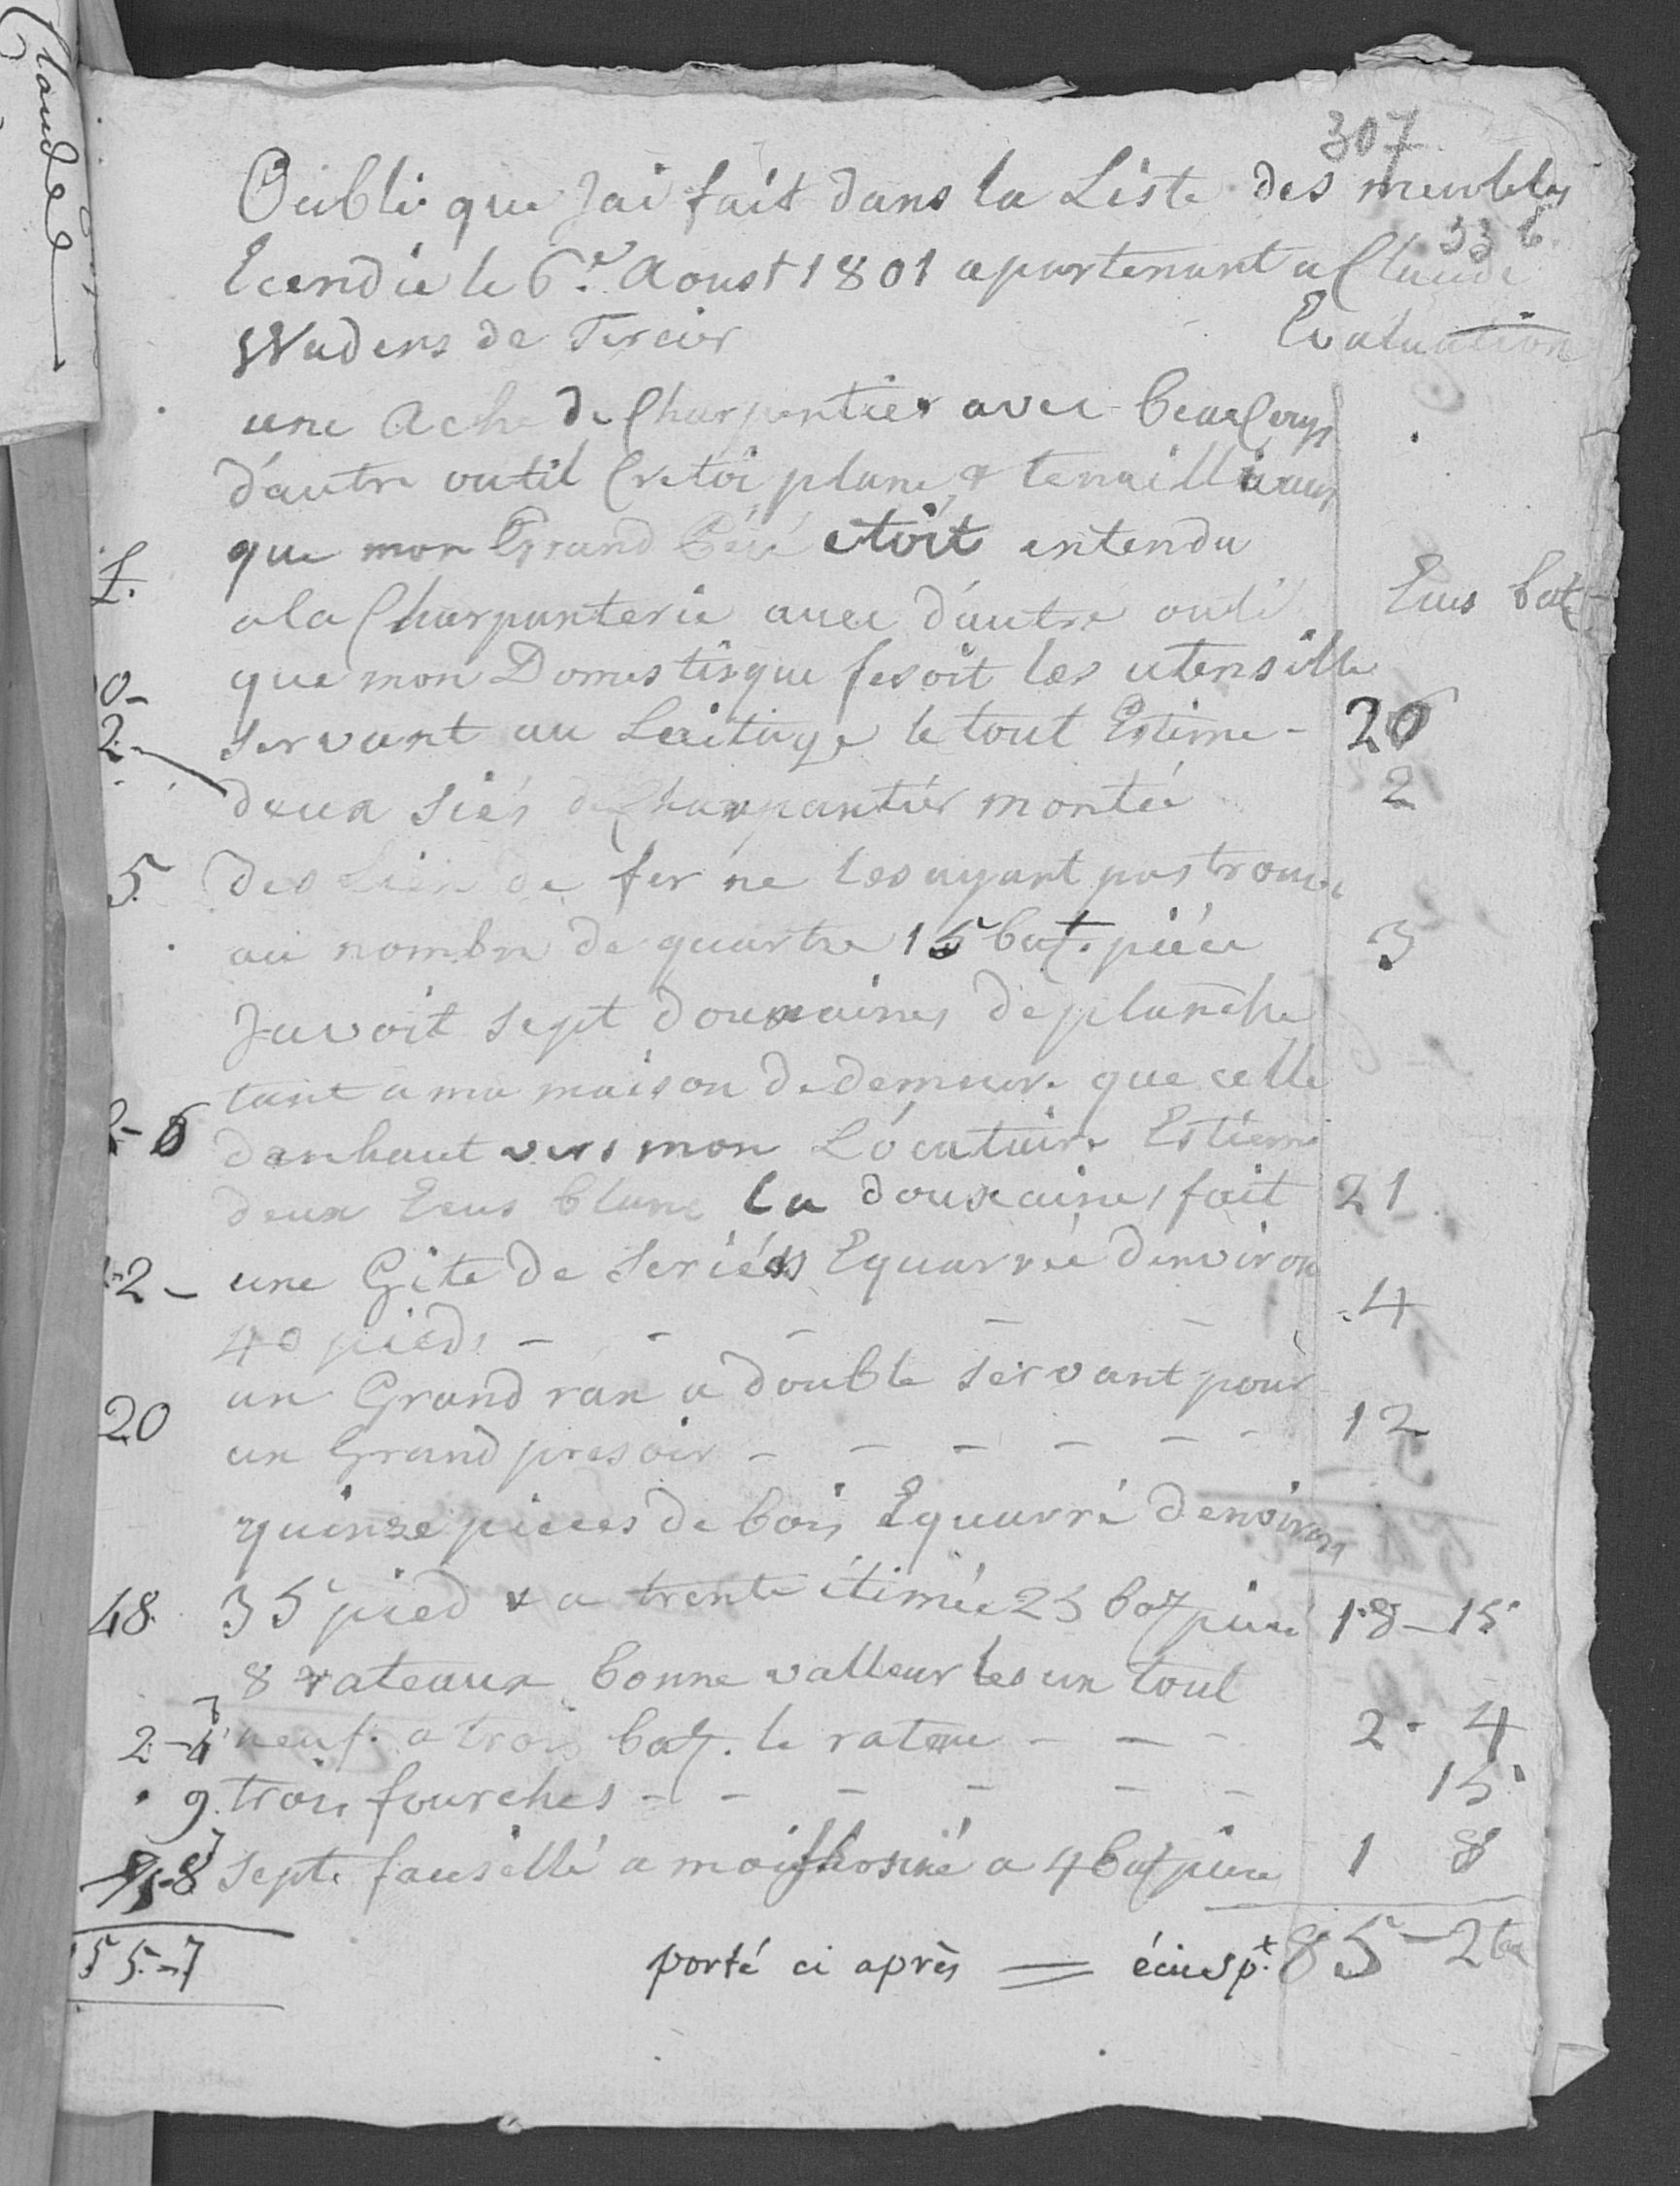 307
Oubli que Jai fait dans la Liste des meubles
336
Ecendie le 6.e Aoust 1801 apartenant a Claude
Wadens de Tercier Evaluation
une Ache de Charpentier avec beaucoup
d'autre outil plane & tenaill
que mon Grand Péré etoit entendu
f. a la Charpanterie avec d'autre outi Ecus batz
0- que mon Domestisque fesoit les utensille
2- servant au Laitage le tout Estime - 20
deux Siés de Charpantiér montée 2
5 des Lien de fer ne les ayant pas trouve
au nombre de quartre 15 batz. piéce 3
Javoit sept douxaines de planche
tant a ma maison de demeure que celle
- 6 denhaut vers mon Locataire Estieme
deux Ecus blanc la douxaines fait 21
-2- une Gite de Seriées Equarrée denviron
40 pieds - - - - - 4
un Grand ran a double servant pour
20 un Grand presoir - - - - - - 12
quinze pieces de bois Equarré denviron
48 35 pied & a trente étimée 25 batz piece 18-15
8 rateaux bonne valleur les un tout
2-4 neuf. a trois batz. le rateau - - - 2 - 4
9. trois fourches - - - - - - 15
8 Septe fausille a a 4 batz piece 1 8
55-7 porté ci après = écus pt. 85-2 bz
Claudee